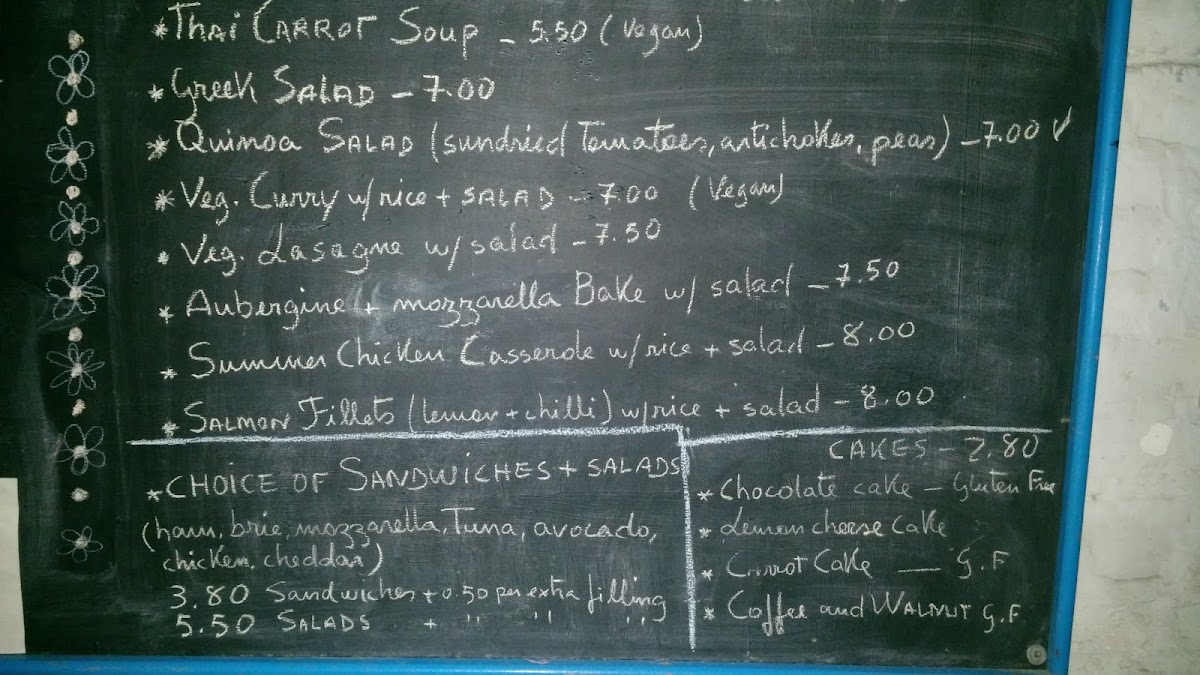 *Thai CARROT Soup - 5.50 (Vegan)
*Greek SALAD - 7.00
*Quinoa SALAD (sundried Tomatoes, artichokes, peas) - 7.00 ✓
*Veg. Curry w/rice + SALAD - 7.00 (Vegan)
*Veg. Lasagne w/ salad - 7.50
*Aubergine + mozzarella Bake w/ salad - 7.50
*Summer Chicken Casserole w/rice + salad - 8.00
*SALMON Fillets (lemon + chilli) w/rice + salad - 8.00
*CHOICE OF SANDWICHES + SALADS
(ham, brie, mozzarella, Tuna, avocado,
chicken, cheddar)
3.80 Sandwiches + 0.50 per extra filling
5.50 SALADS + " " "
CAKES - 2.80
*Chocolate cake - Gluten Free
*Lemon cheese cake
*Carrot Cake — G.F
*Coffee and WALNUT G.F.